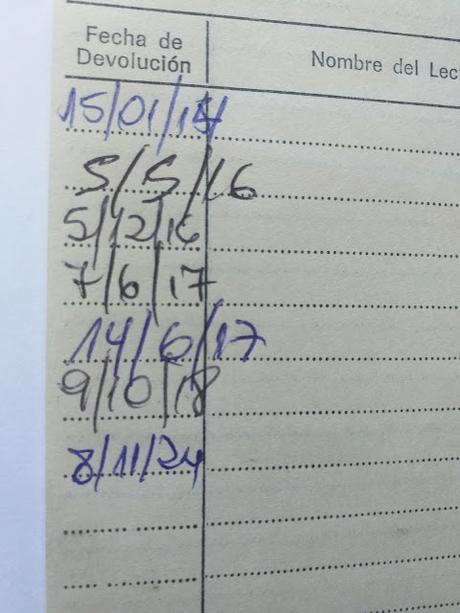 Fecha de
Devolución
Nombre del Lec
15/01/15
5/5/16
5/12/16
7/6/17
14/6/17
9/10/18
8/11/24